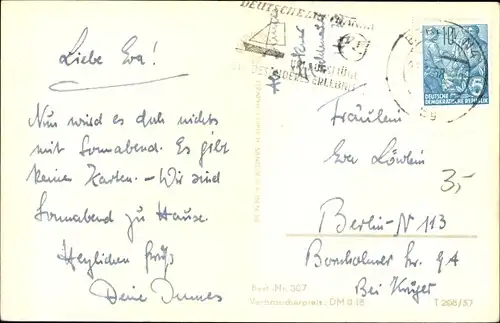 Liebe Eva!
Nun wird es doch nichts
mit Sonnabend. Es gibt
keine Karten. – Wir sind
Sonnabend zu Hause.
Herzlichen Gruß
Deine
DEUTSCHE
10
DEUTSCHE
DEMOKRATISCHE REPUBLIK
Fräulein
Eva
Berlin-N 113
Bornholmer Str. 9A
Bei Krüger
3,-
Best.-Nr. 307
Verbraucherpreis: DM 0,18
T 206/57